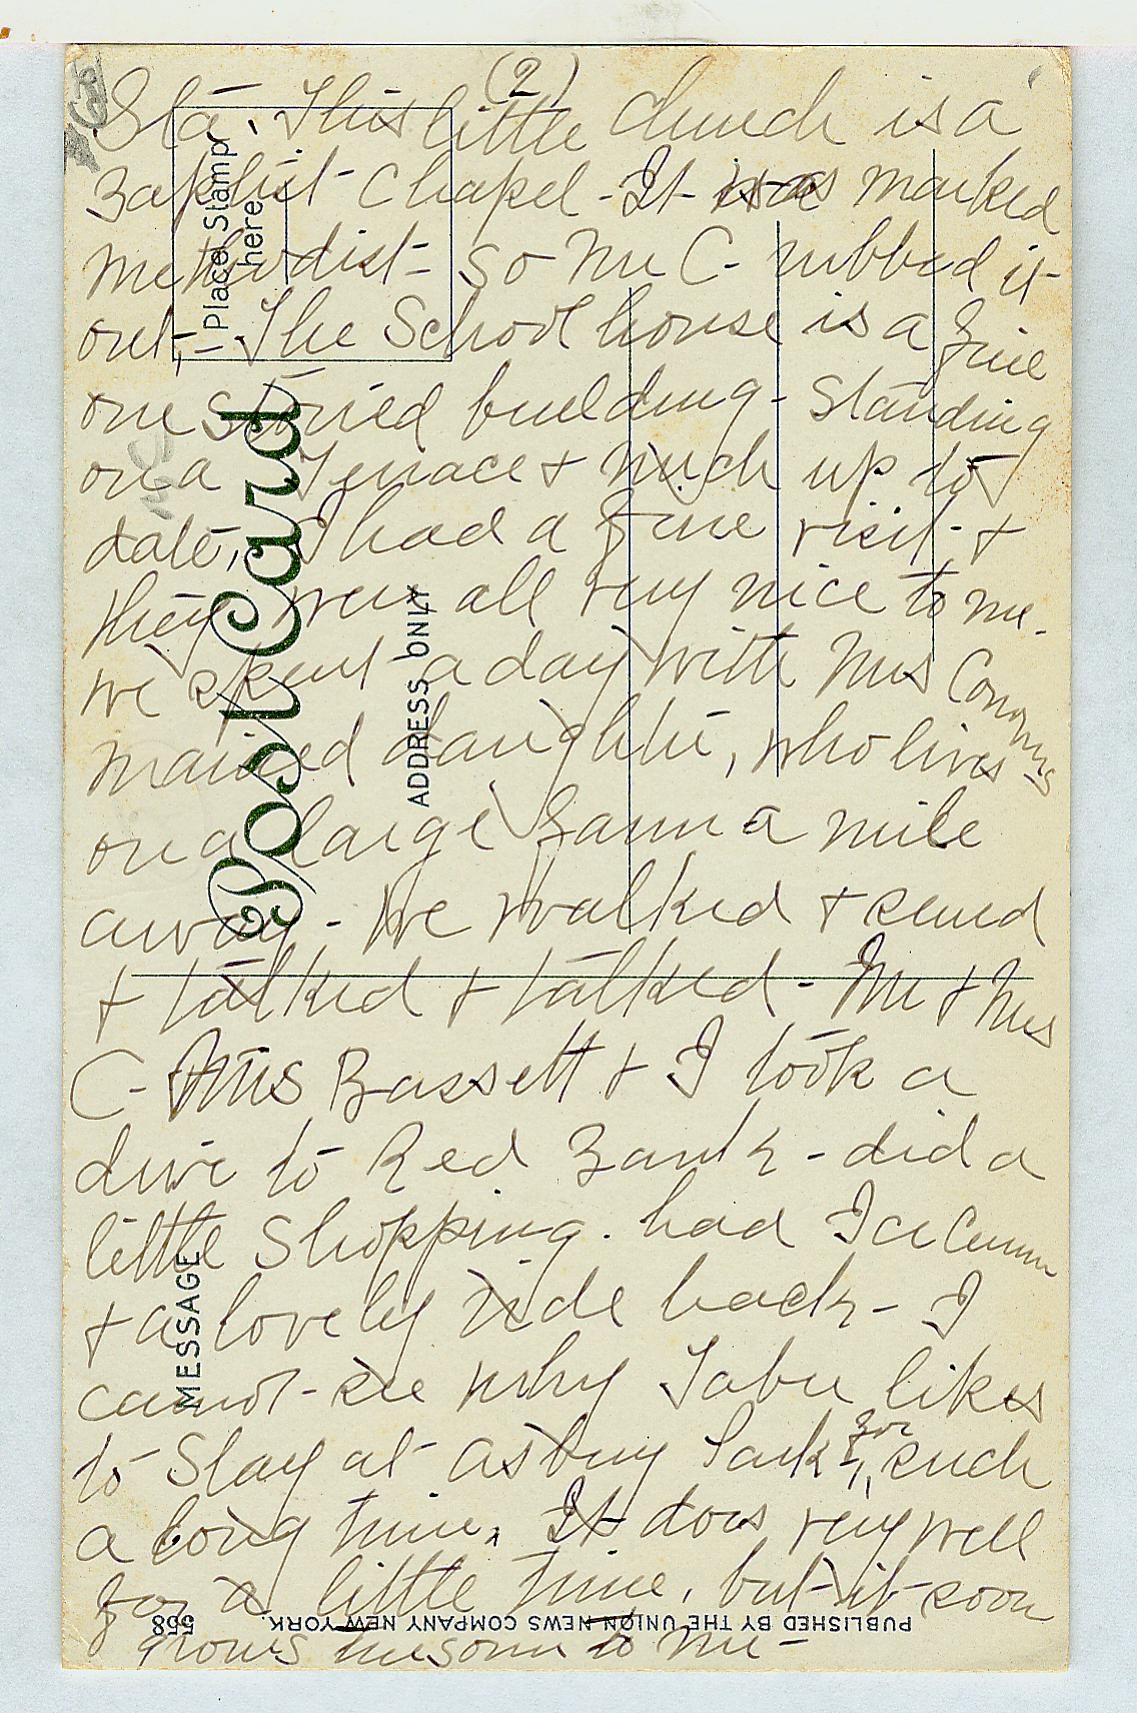 (2)
Sta. This little church is a
Baptist Chapel - It was marked
Methodist - so Mr C - rubbed it
out, - The School house is a fine
one storied building - Standing
on a Terrace & much up to
date, I had a fine visit - &
they were all very nice to me.
We spent a day with Mrs Conovers
married daughter, who lives
on a large Farm a mile
away - We walked & sewed
& talked & talked - Mr & Mrs
C - Miss Bassett & I took a
drive to Red Bank - did a
little Shopping. had Ice Cream
& a lovely ride back - I
cannot see why likes
to Stay at Asbury Park for such
a long time. It does very well
for a little time, but it soon
grows tiresome to me -
Place Stamp
here
Post Card
ADDRESS ONLY
MESSAGE
PUBLISHED BY THE UNION NEWS COMPANY NEW YORK.
558